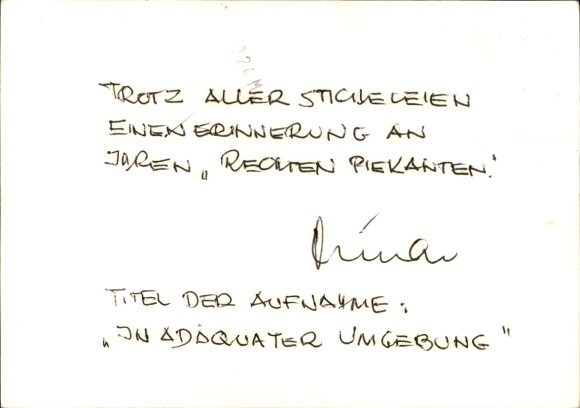 TROTZ ALLER STICHELEIEN
EINEN ERINNERUNG AN
IHREN „RECHTEN PIEKANTEN."
TITEL DER AUFNAHME:
„IN ADÄQUATER UMGEBUNG"